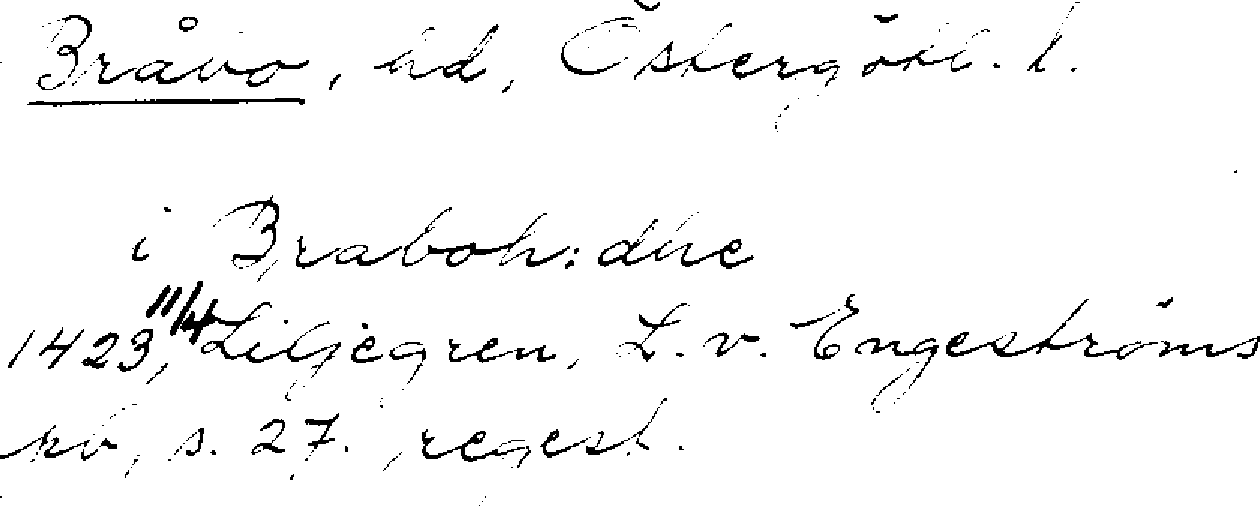 Bråbo, hd, Östergötl. l.
i Braboh:dhe
1423, 11/4 Liljegren, L. v. Engeströms
pb, s. 27. regest.